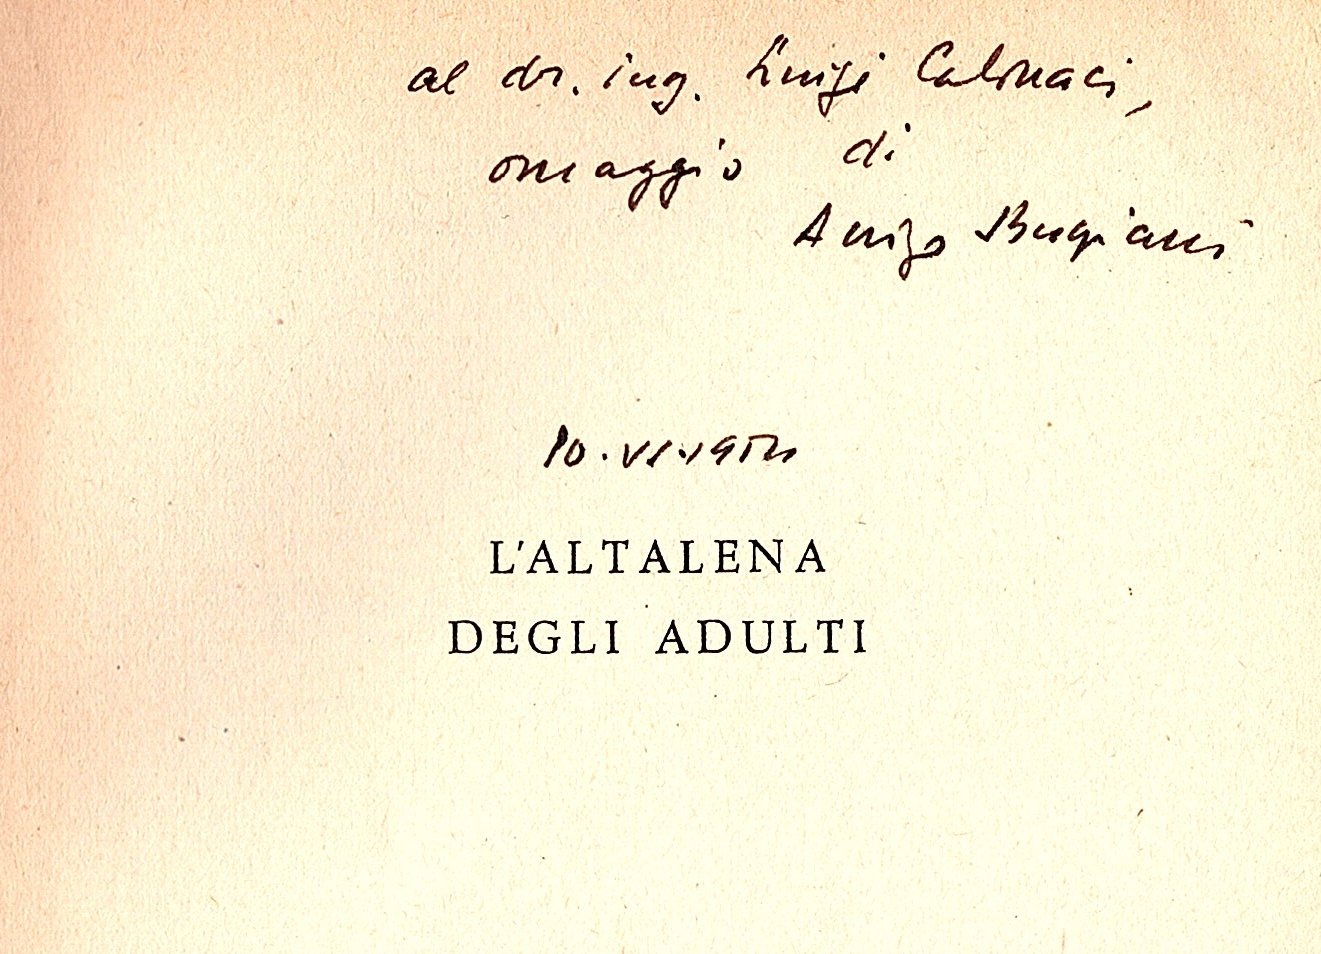 al dr. ing. Luigi Calonaci,
omaggio di
Arrigo Bugiani
L'ALTALENA
DEGLI ADULTI